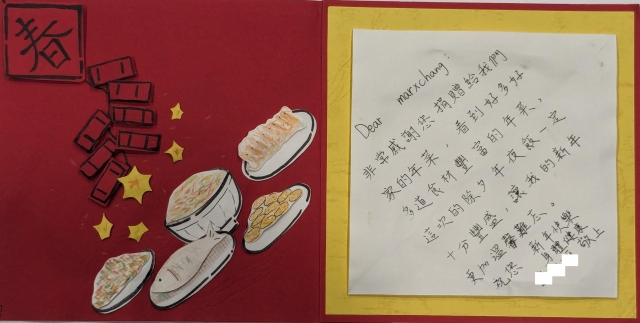 春
Dear marxchang:
非常感謝您捐贈給我們
家的年菜，看到好多好
多道食材豐富的年菜，
這次的除夕年夜飯一定
十分豐盛，讓我的新年
更加溫馨難忘。
祝您 新年快樂
身體健康
敬上